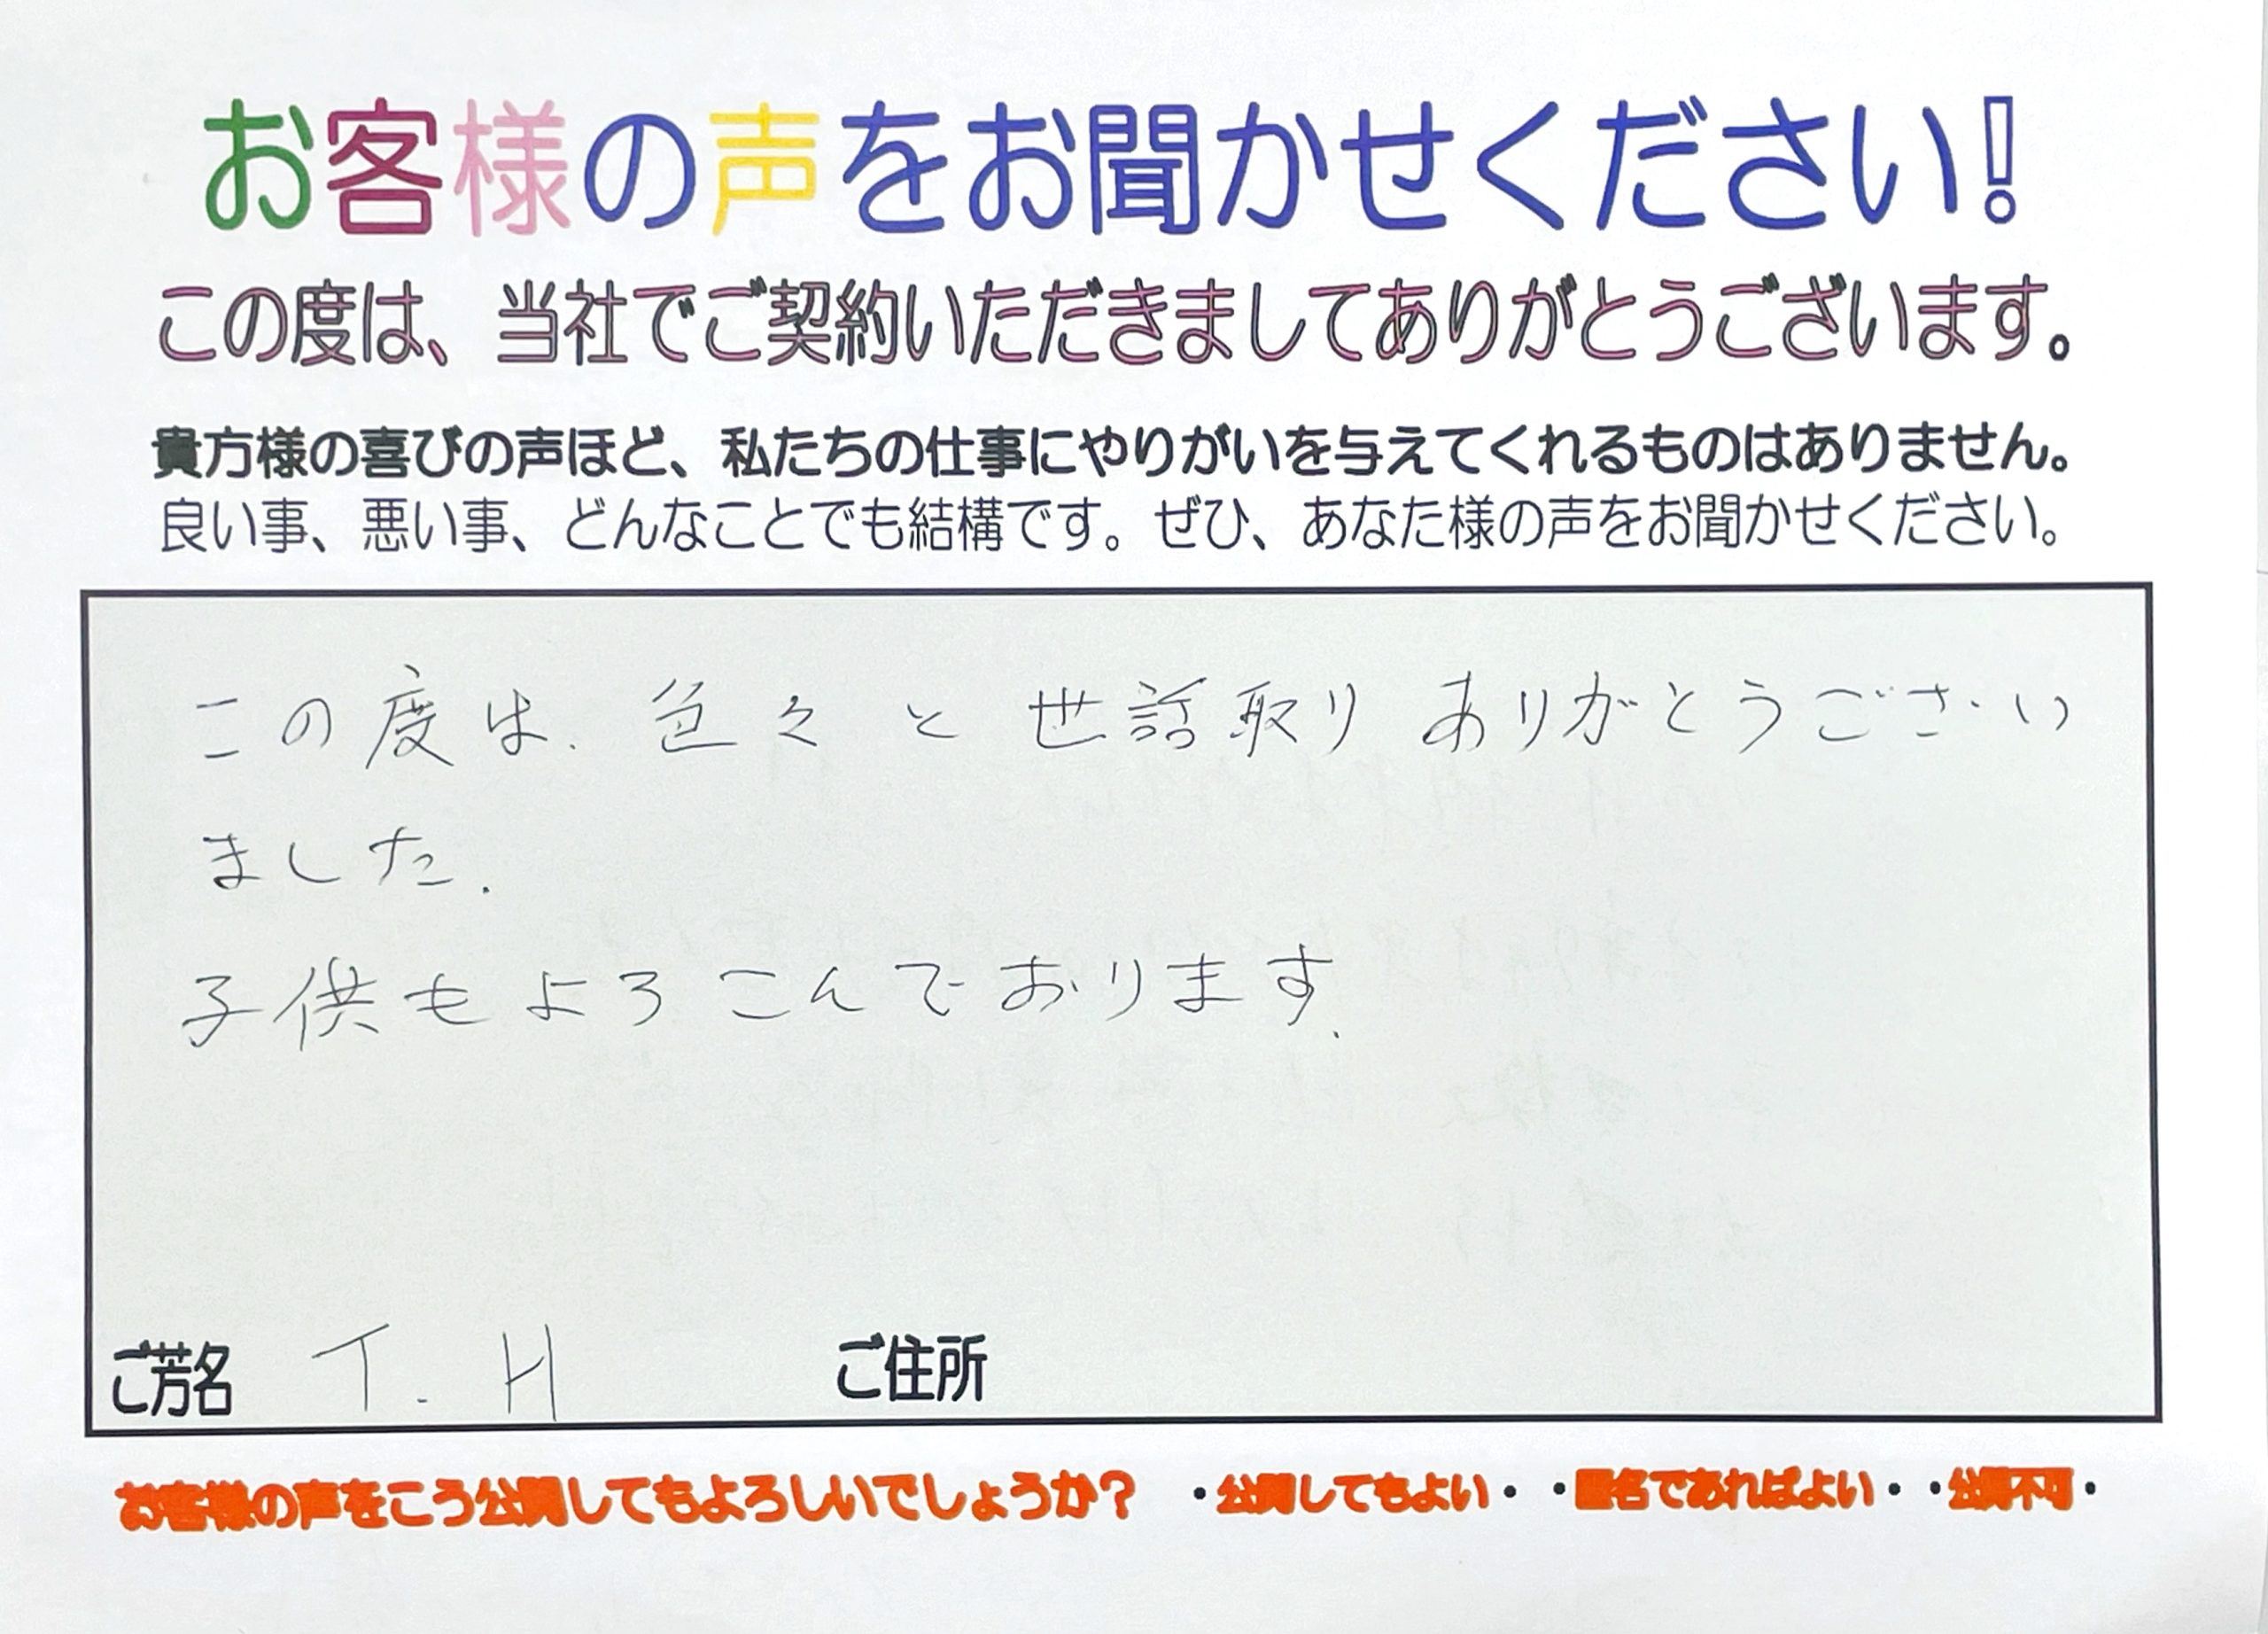 お客様の声をお聞かせください!
この度は、当社でご契約いただきましてありがとうございます。
貴方様の喜びの声ほど、私たちの仕事にやりがいを与えてくれるものはありません。
良い事、悪い事、どんなことでも結構です。ぜひ、あなた様の声をお聞かせください。
この度は、色々と世話取りありがとうござい
ました.
子供もよろこんでおります.
ご芳名 T.H ご住所
お客様の声をこう公開してもよろしいでしょうか? ・公開してもよい・ ・匿名であればよい・ ・公開不可・